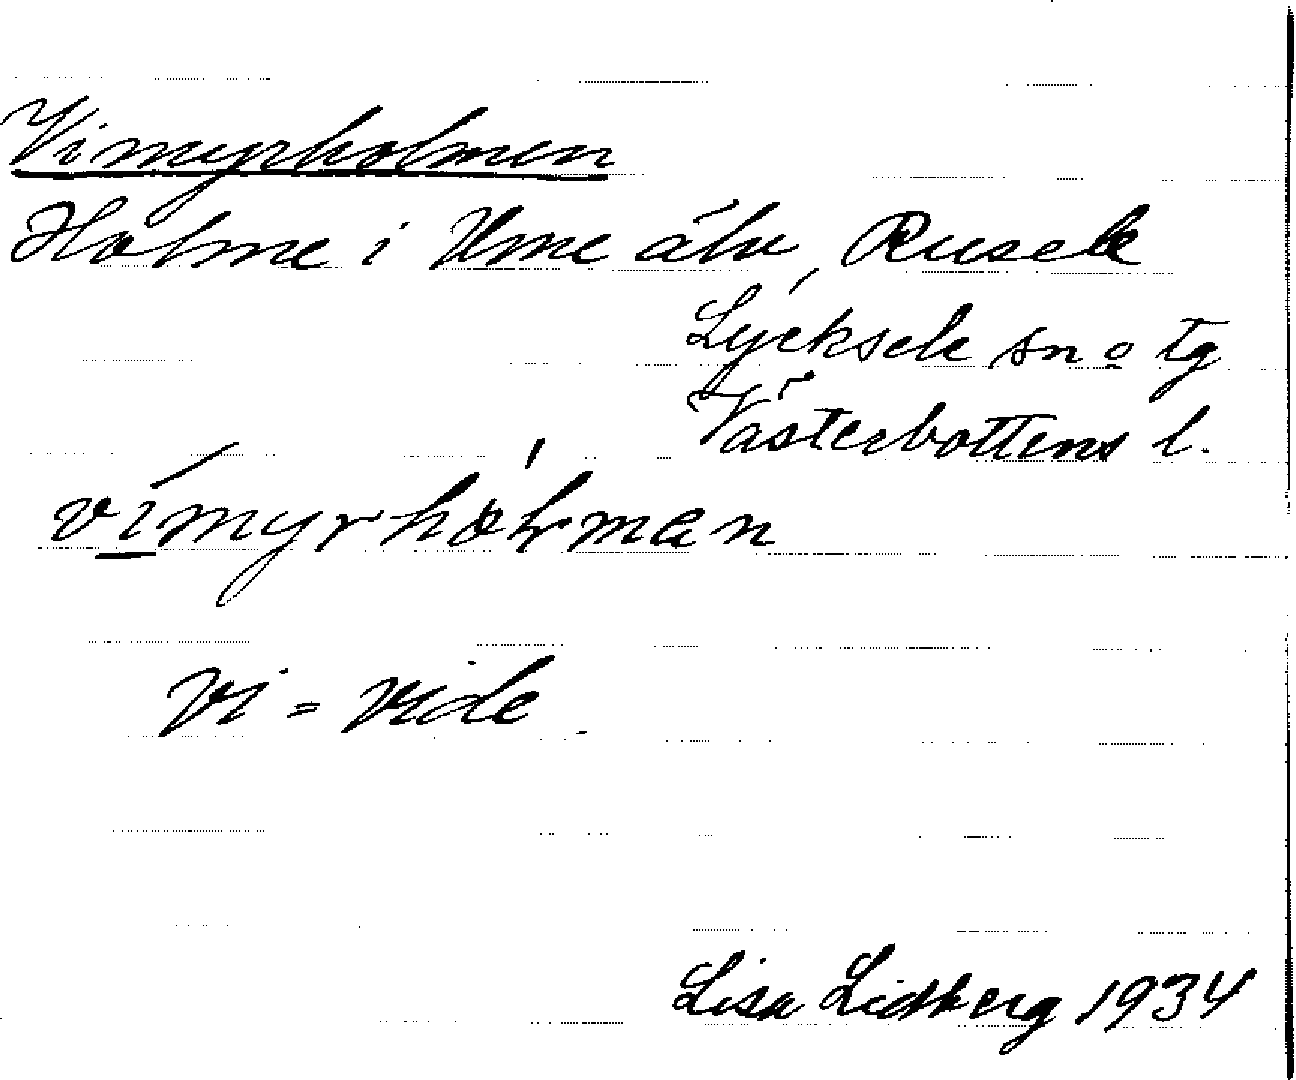 Vimyrholmen
Holme i Ume älv, Rusele
Lycksele sn o tg
Västerbottens l.
vímyrhòlman
Vi = vide
Lisa Lidberg 1934